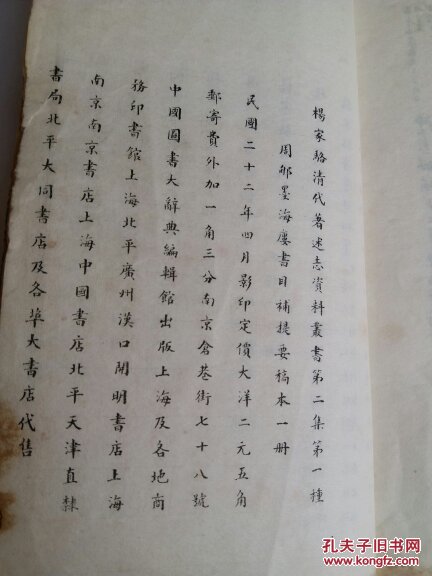 楊家駱清代著述志資料叢書第二集第一種
周郇墨海廔書目補提要稿本一册
民國二十二年四月影印定價大洋二元五角
郵寄費外加一角三分南京倉巷街七十八號
中國圖書大辭典編輯館出版上海及各地商
務印書館上海北平廣州漢口開明書店上海
南京南京書店上海中國書店北平天津直隸
書局北平大同書店及各埠大書店代售
孔夫子旧书网